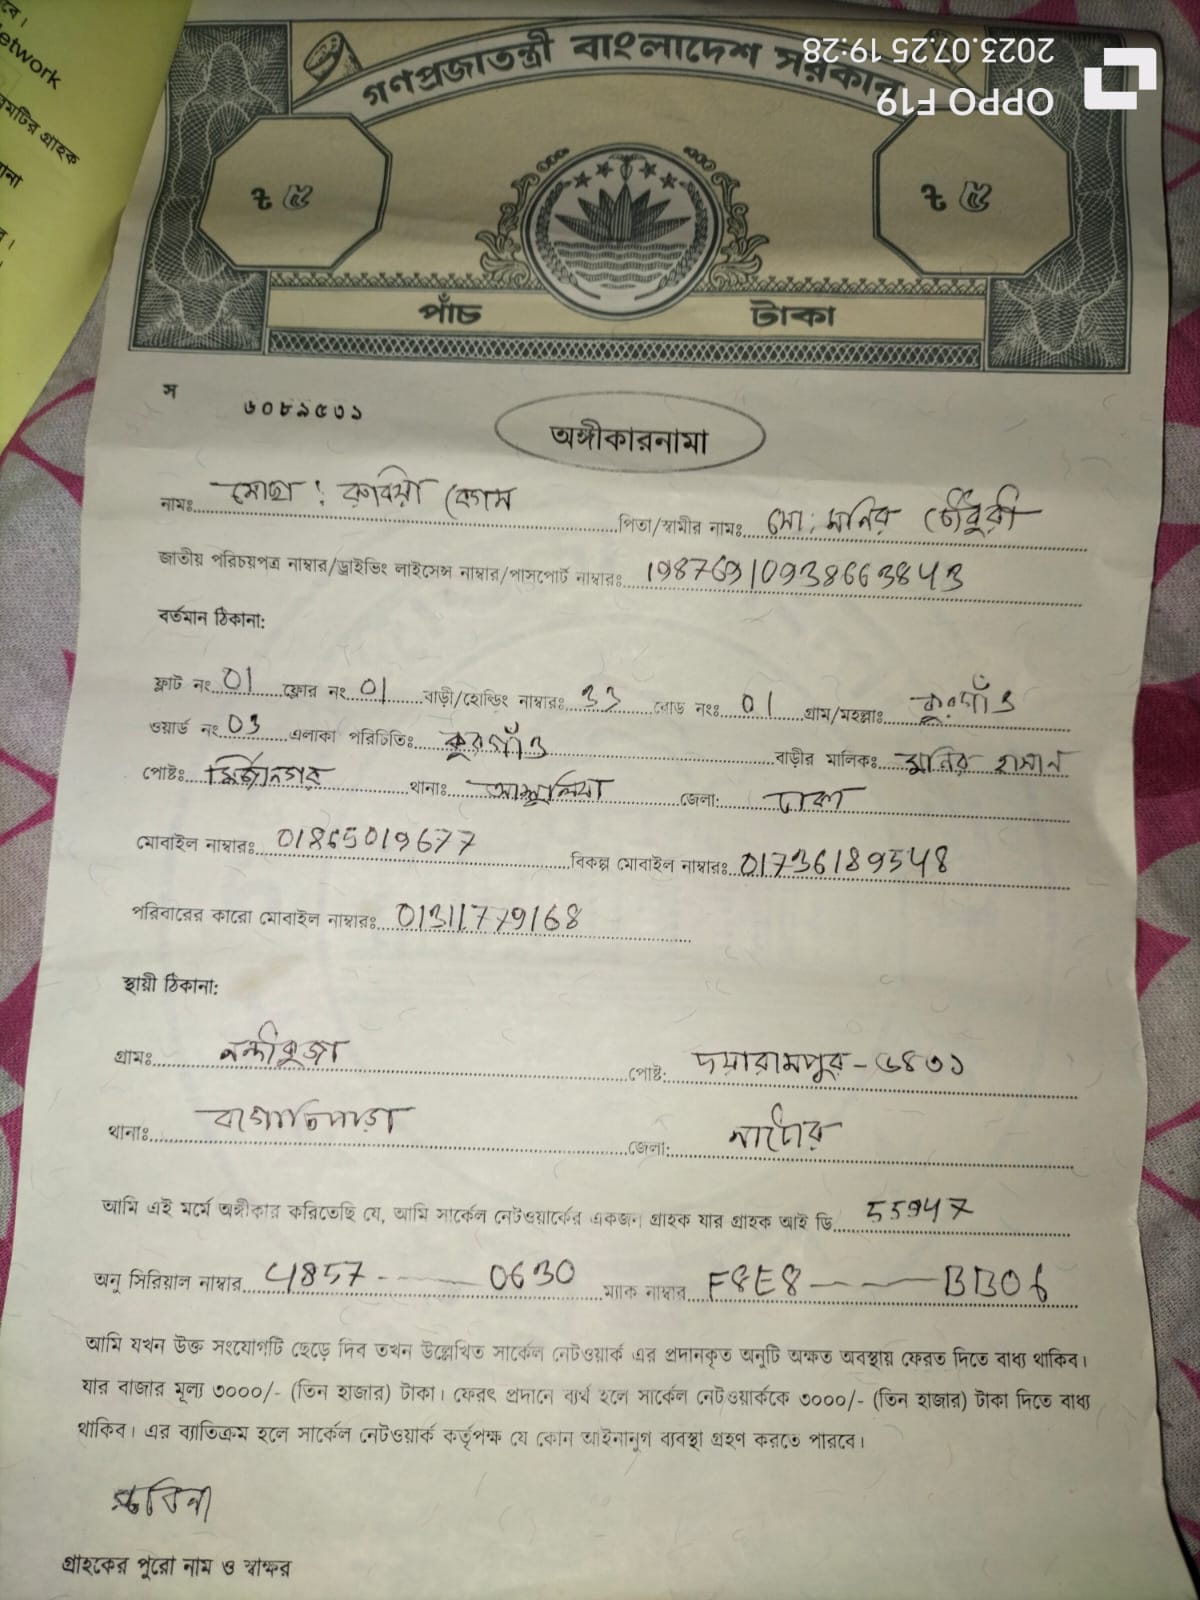 etwork
গ্রাহক
2023.07.25 19:28
OPPO F19
গণপ্রজাতন্ত্রী বাংলাদেশ সরকার
৳ ৫ ৳ ৫
পাঁচ টাকা
স ৬০৮৯৫৩১
অঙ্গীকারনামা
নামঃ মোছা: রুবিয়া বেগম পিতা/স্বামীর নামঃ মো: মনির চৌধুরী
জাতীয় পরিচয়পত্র নাম্বার/ড্রাইভিং লাইসেন্স নাম্বার/পাসপোর্ট নাম্বারঃ 19876910938663843
বর্তমান ঠিকানা:
ফ্লাট নং 01 ফ্লোর নং 01 বাড়ী/হোল্ডিং নাম্বারঃ 33 রোড নংঃ 01 গ্রাম/মহল্লাঃ কুরগাঁও
ওয়ার্ড নং 03 এলাকা পরিচিতিঃ কুরগাঁও বাড়ীর মালিকঃ মুনির হাসান
পোষ্টঃ মির্জানগর থানাঃ আশুলিয়া জেলা: ঢাকা
মোবাইল নাম্বারঃ 01865019677 বিকল্প মোবাইল নাম্বারঃ 01736189548
পরিবারের কারো মোবাইল নাম্বারঃ 01311779168
স্থায়ী ঠিকানা:
গ্রামঃ নন্দীকুজা পোষ্ট: দয়ারামপুর - ৬৪৩১
থানাঃ বাগাতিপাড়া জেলা: নাটোর
আমি এই মর্মে অঙ্গীকার করিতেছি যে, আমি সার্কেল নেটওয়ার্কের একজন গ্রাহক যার গ্রাহক আই ডি 55947
অনু সিরিয়াল নাম্বার 4857 ---- 0630 ম্যাক নাম্বার F8E8 --- BB06
আমি যখন উক্ত সংযোগটি ছেড়ে দিব তখন উল্লেখিত সার্কেল নেটওয়ার্ক এর প্রদানকৃত অনুটি অক্ষত অবস্থায় ফেরত দিতে বাধ্য থাকিব।
যার বাজার মূল্য ৩০০০/- (তিন হাজার) টাকা। ফেরৎ প্রদানে ব্যর্থ হলে সার্কেল নেটওয়ার্ককে ৩০০০/- (তিন হাজার) টাকা দিতে বাধ্য
থাকিব। এর ব্যাতিক্রম হলে সার্কেল নেটওয়ার্ক কর্তৃপক্ষ যে কোন আইনানুগ ব্যবস্থা গ্রহণ করতে পারবে।
গ্রাহকের পুরো নাম ও স্বাক্ষর